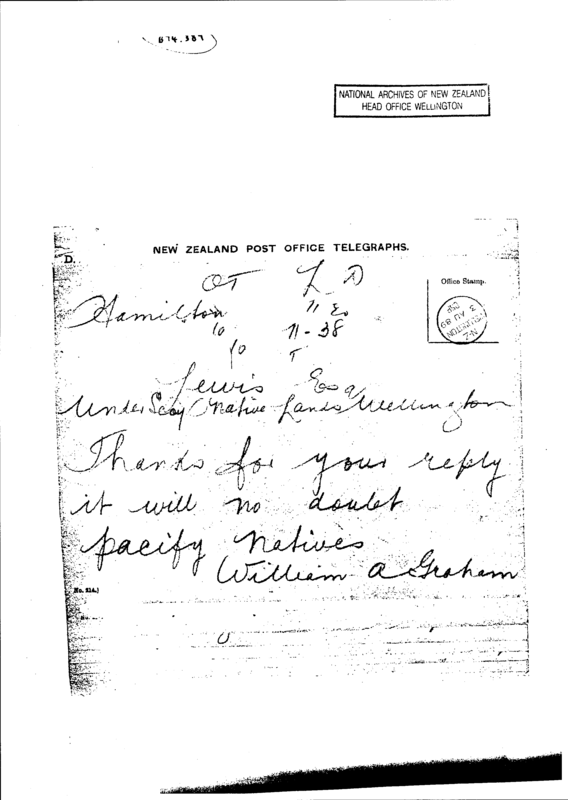 B74.387
NATIONAL ARCHIVES OF NEW ZEALAND
HEAD OFFICE WELLINGTON
NEW ZEALAND POST OFFICE TELEGRAPHS.
D.
OT
Office Stamp.
Hamilton
10 11-38
10 T
Lewis Esq
Under Secy Native Lands Wellington
WELLINGTON
N.Z
3 AU 89
Thanks for your reply
it will no doubt
pacify Natives
William A Graham
No. 214.)